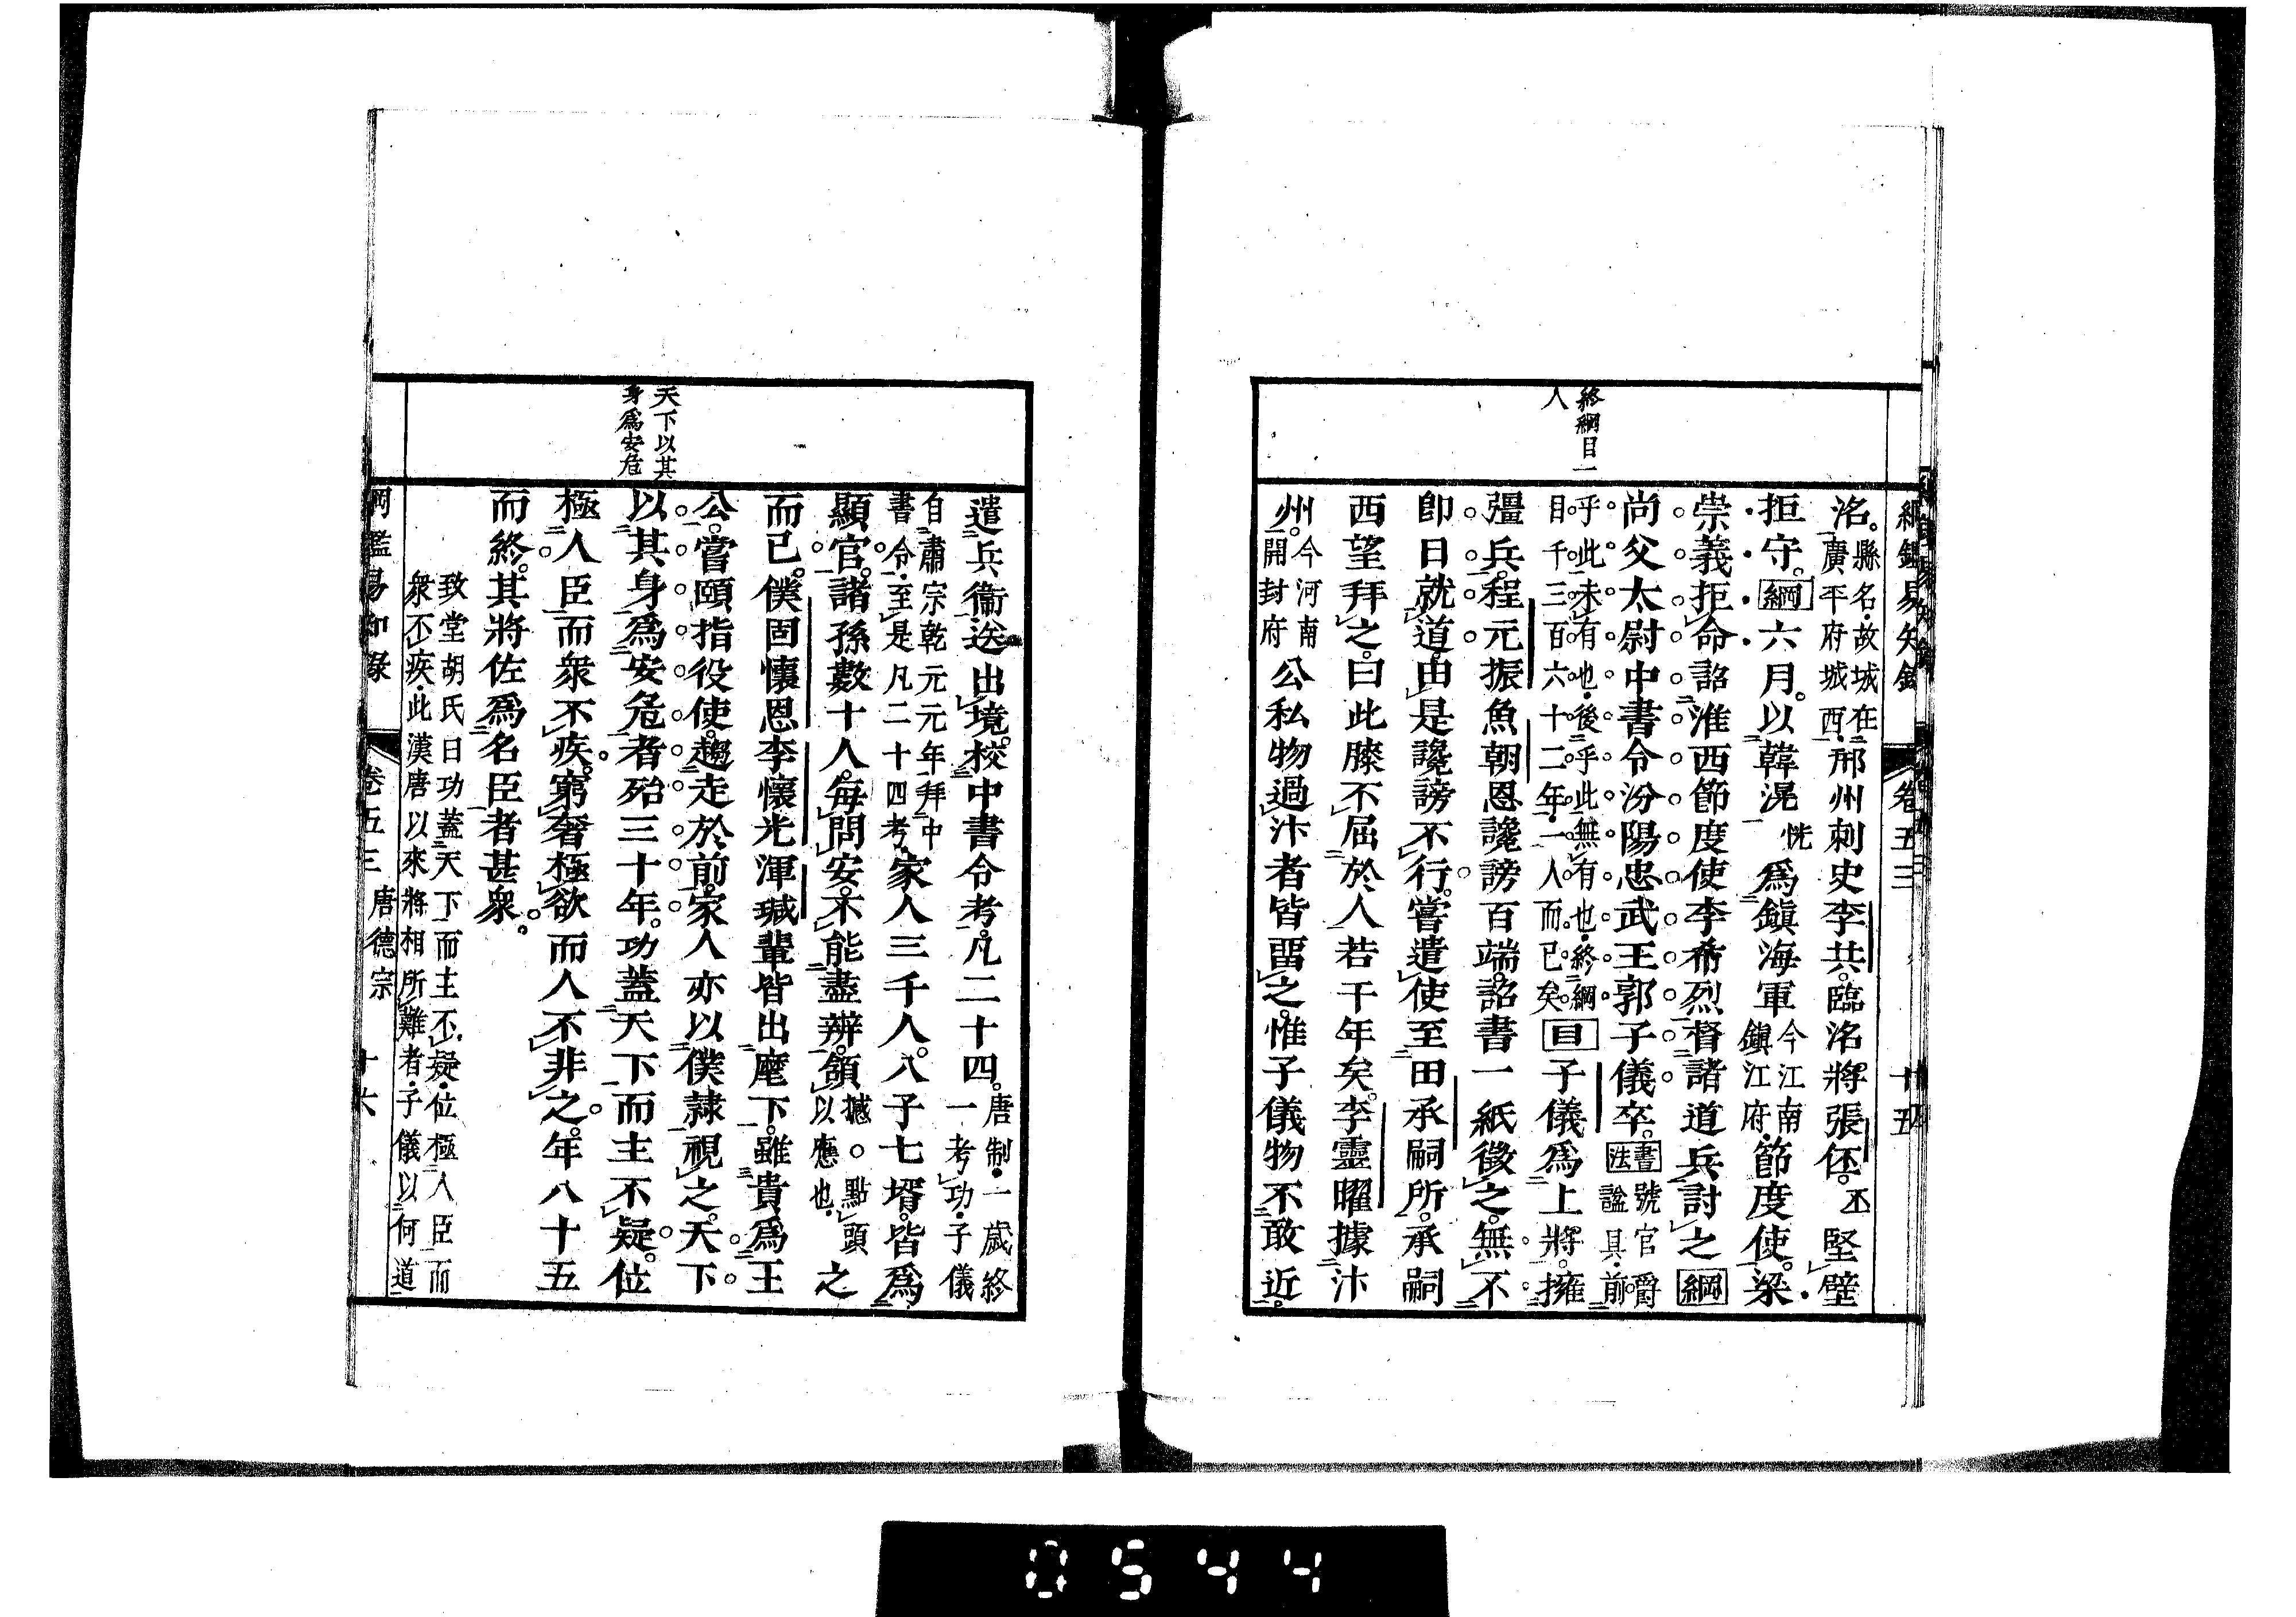 綱鑑易知錄 卷五三 十五
終綱目一
人
洺。縣名。故城在廣平府城西。邢州刺史李共。臨洺將張伾。丕堅壁
拒守。綱六月。以韓滉恍爲鎭海軍今江南鎭江府。節度使。梁
崇義拒命。詔淮西節度使李希烈督諸道兵討之。綱
尚父太尉中書令汾陽忠武王郭子儀卒。書法號官爵諡具。前
乎此未有也。後乎此無有也。終綱目千三百六十二年。一人而已矣。目子儀爲上將。擁
彊兵。程元振魚朝恩讒謗百端。詔書一紙徵之。無不
卽日就道。由是讒謗不行。嘗遣使至田承嗣所。承嗣
西望拜之。曰此膝不屈於人若干年矣。李靈曜據汴
州。今河南開封府公私物過汴者皆畱之。惟子儀物不敢近。
天下以其
身爲安危
遣兵衞送出境。校中書令考。凡二十四。唐制。一歲終一考功。子儀
自肅宗乾元元年拜中書令。至是凡二十四考。家人三千人。八子七壻。皆爲
顯官。諸孫數十人。每問安。不能盡辨。頷撼。○點頭以應也。之
而已。僕固懷恩李懷光渾瑊輩皆出麾下。雖貴爲王
公。嘗頤指役使。趨走於前。家人亦以僕隷視之。天下
以其身爲安危者殆三十年。功蓋天下而主不疑。位
極人臣而衆不疾。窮奢極欲而人不非之。年八十五
而終。其將佐爲名臣者甚衆。
致堂胡氏曰功蓋天下而主不疑。位極人臣而
衆不疾。此漢唐以來將相所難者。子儀以何道
綱鑑易知錄 卷五三 唐德宗 十六
0544